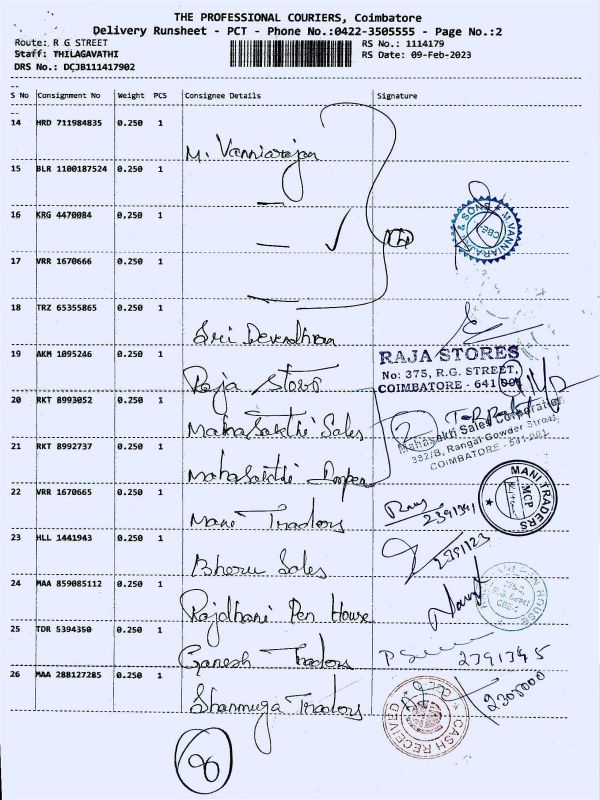 THE PROFESSIONAL COURIERS, Coimbatore
Delivery Runsheet - PCT - Phone No.:0422-3505555 - Page No.:2
Route: R G STREET
RS No.: 1114179
Staff: THILAGAVATHI
RS Date: 09-Feb-2023
DRS No.: DCJB111417902
S No Consignment No Weight PCS Consignee Details Signature
14 HRD 711984835 0.250 1
M. Vanniarajan
15 BLR 1100187524 0.250 1
16 KRG 4470084 0.250 1
M.VANNIARAJAN & SONS
CBE-1
17 VRR 1670666 0.250 1
18 TRZ 65355865 0.250 1
Sri Devendhran
19 AKM 1095246 0.250 1
RAJA STORES
No: 375, R.G. STREET,
COIMBATORE - 641 001
Raja Stores
20 RKT 8993052 0.250 1
Mahasakthi Sales
2
Mahasakthi Sales Corporation
382/B, Rangai Gowder Street,
COIMBATORE - 641 001
21 RKT 8992737 0.250 1
Mahasakthi
22 VRR 1670665 0.250 1
Mani Traders
MANI TRADERS
MCP
23 HLL 1441943 0.250 1
Bheru Sales
24 MAA 859085112 0.250 1
Rajdhani Pen House
PEN HOUSE
R.G. Street
CBE-1
25 TDR 5394350 0.250 1
Ganesh Traders
2391395
26 MAA 288127285 0.250 1
Shanmuga Traders
CASH RECEIVED
8